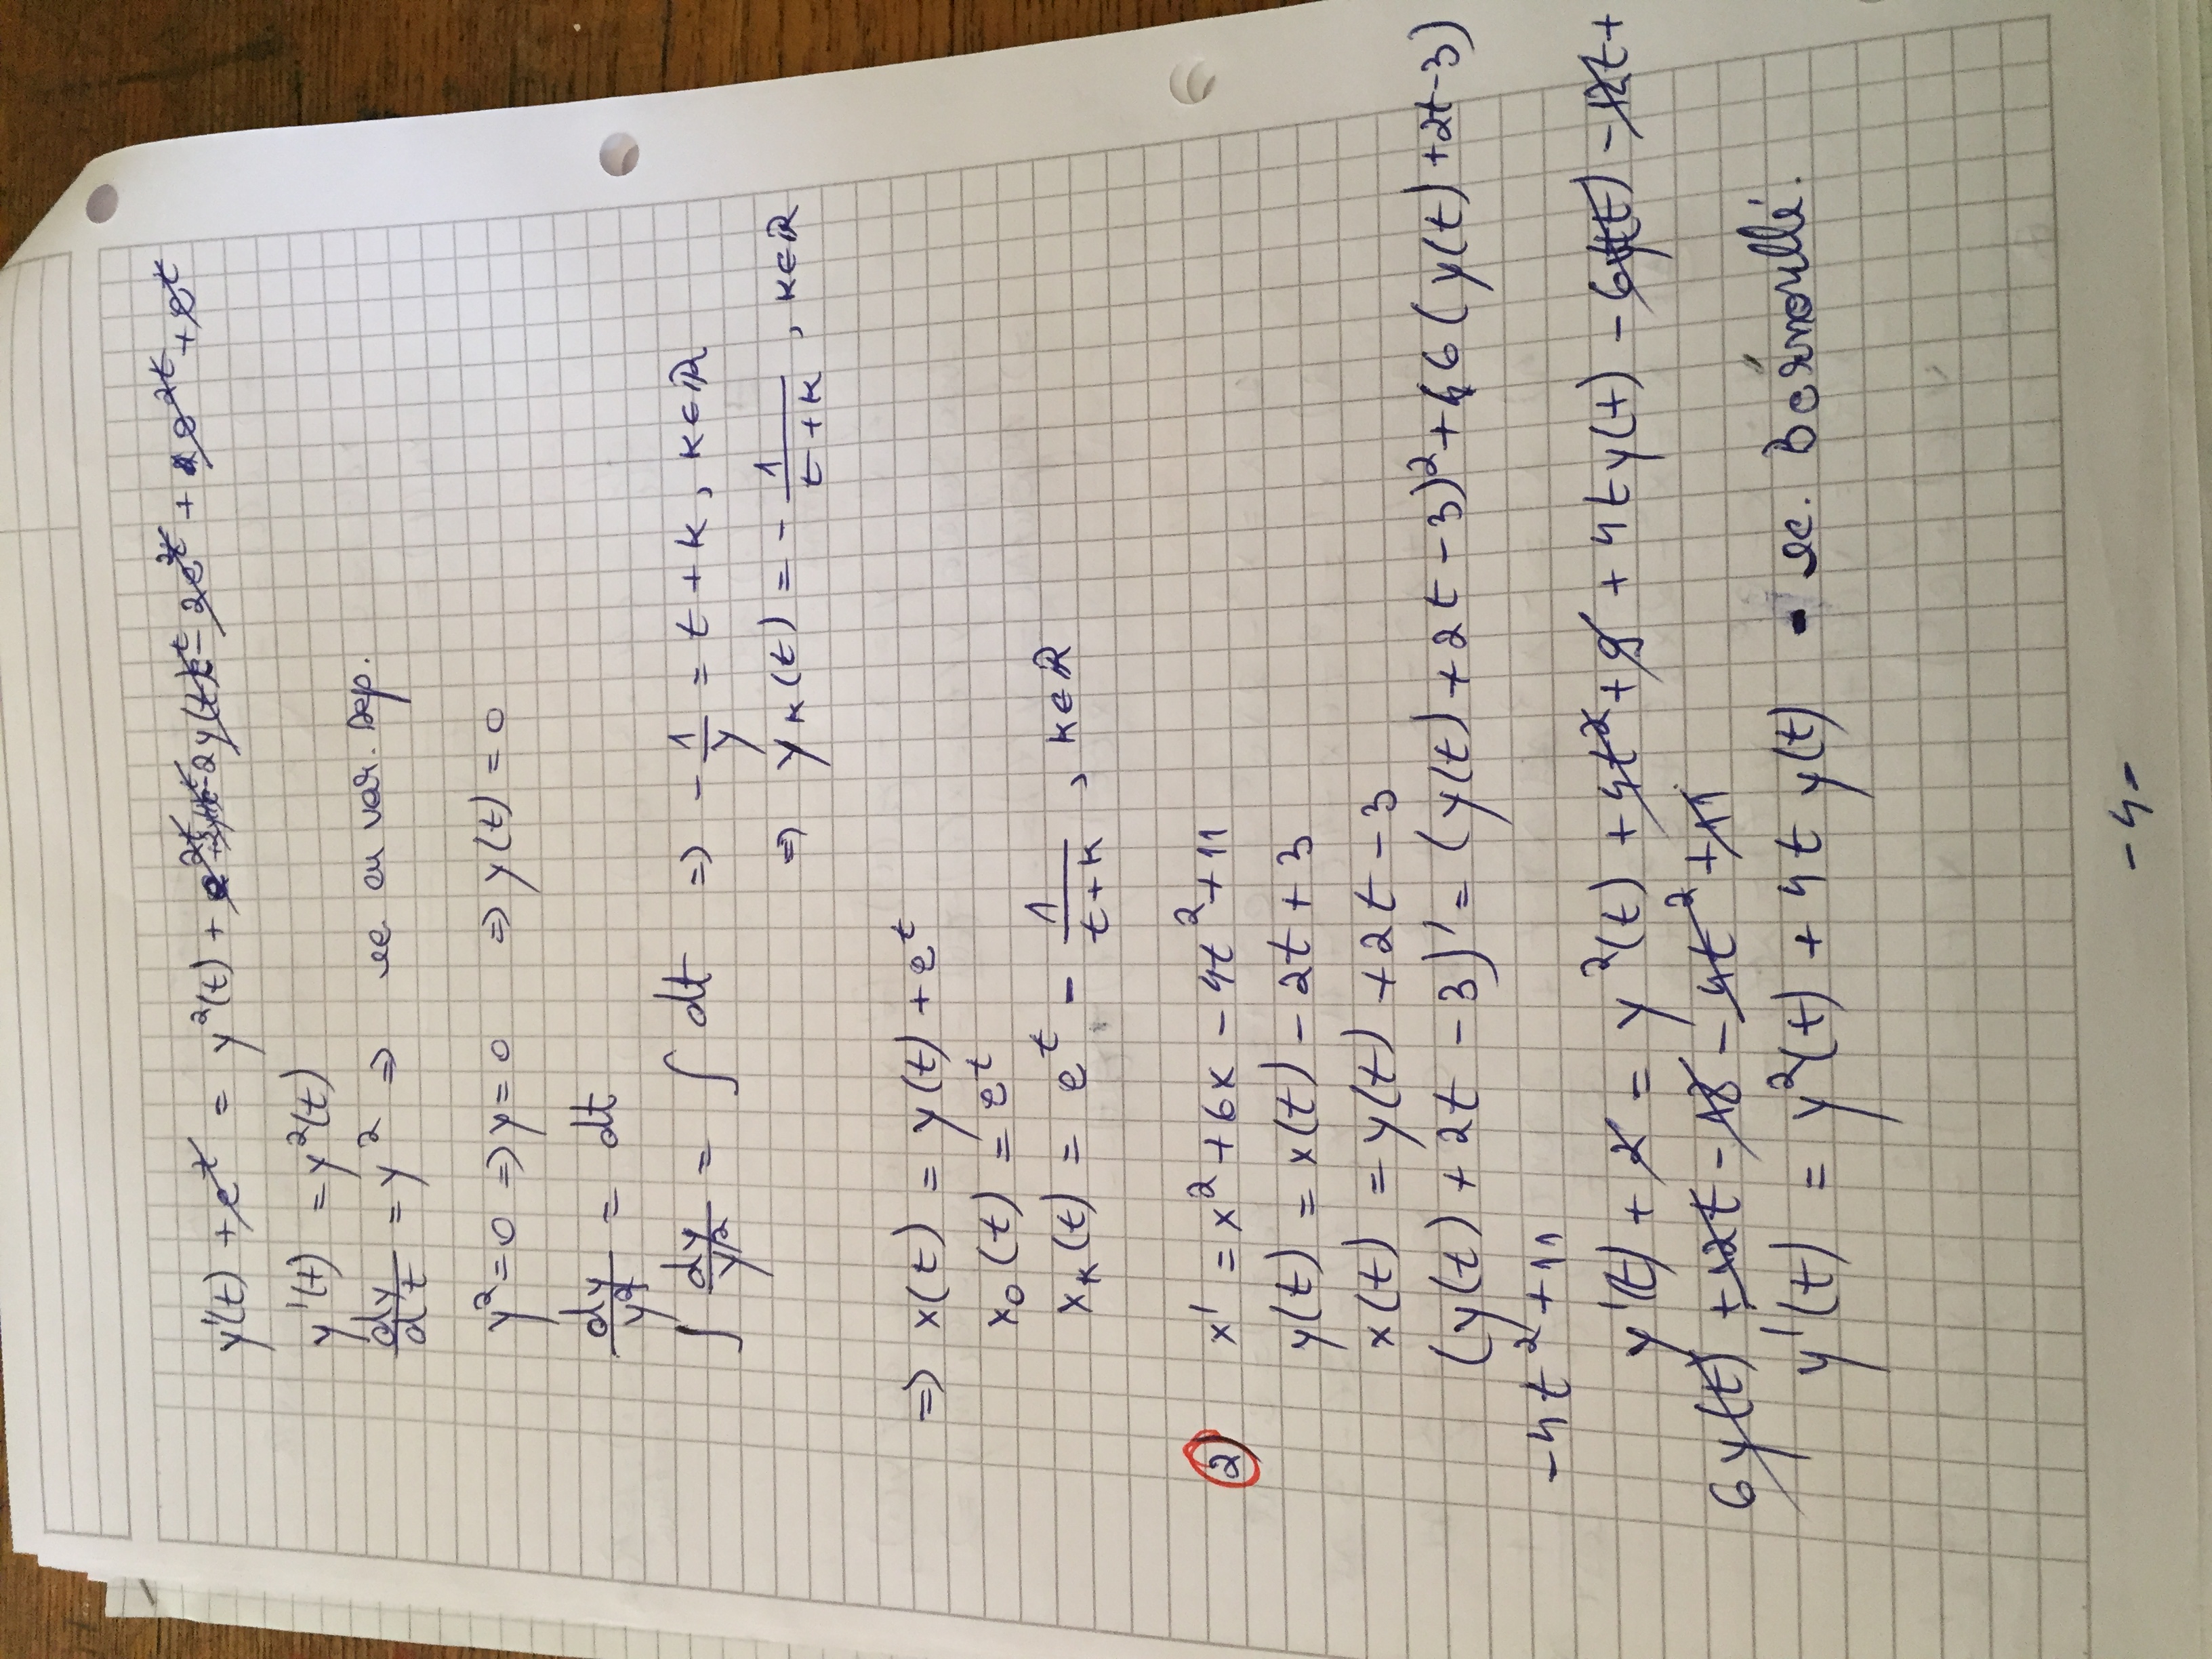 y'(t) + e^t = y²(t) + e^2t + 2y(t)e^t - 2y(t)e^t - 2e^2t + e^2t + e^t
y'(t) = y²(t)
dy/dt = y² ⇒ ec. cu var. sep.
y² = 0 ⇒ y = 0 ⇒ y(t) = 0
dy/y² = dt
∫ dy/y² = ∫ dt ⇒ - 1/y = t + k, k∈ℝ
⇒ y_k(t) = - 1/(t + k), k∈ℝ
⇒ x(t) = y(t) + e^t
x_0(t) = e^t
x_k(t) = e^t - 1/(t + k), k∈ℝ
2) x' = x² + 6x - 4t² + 11
y(t) = x(t) - 2t + 3
x(t) = y(t) + 2t - 3
(y(t) + 2t - 3)' = (y(t) + 2t - 3)² + 6(y(t) + 2t - 3)
- 4t² + 11
y'(t) + 2 = y²(t) + 4t² + 9 + 4ty(t) - 6y(t) - 12t +
6y(t) + 12t - 18 - 4t² + 11
y'(t) = y²(t) + 4t y(t) - ec. Bernoulli.
- 4 -